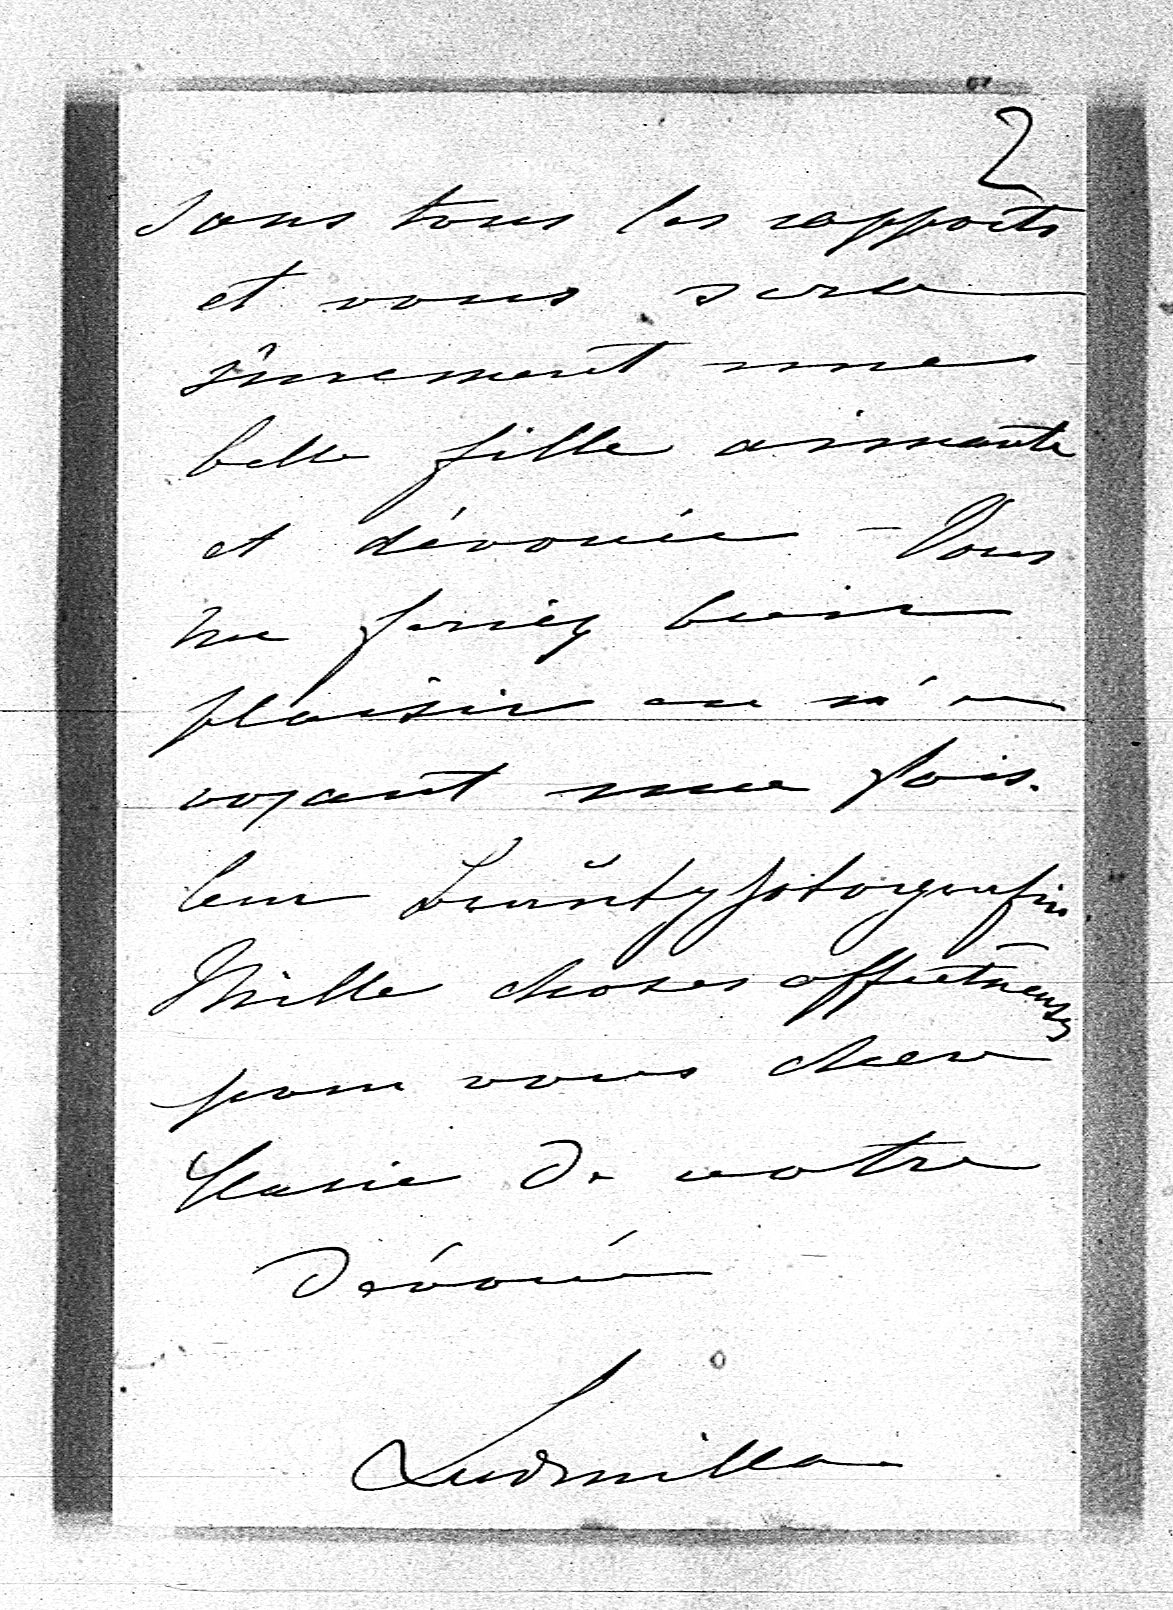 2
sous tous les rapports
et vous sera
sûrement une
belle fille aimante
et dévouée – Vous
me feriez bien
plaisir en m'en
voyant une fois
leur fotografie
Mille choses affectueuses
pour vous cher
Marie de votre
Dévouée
Ludmilla